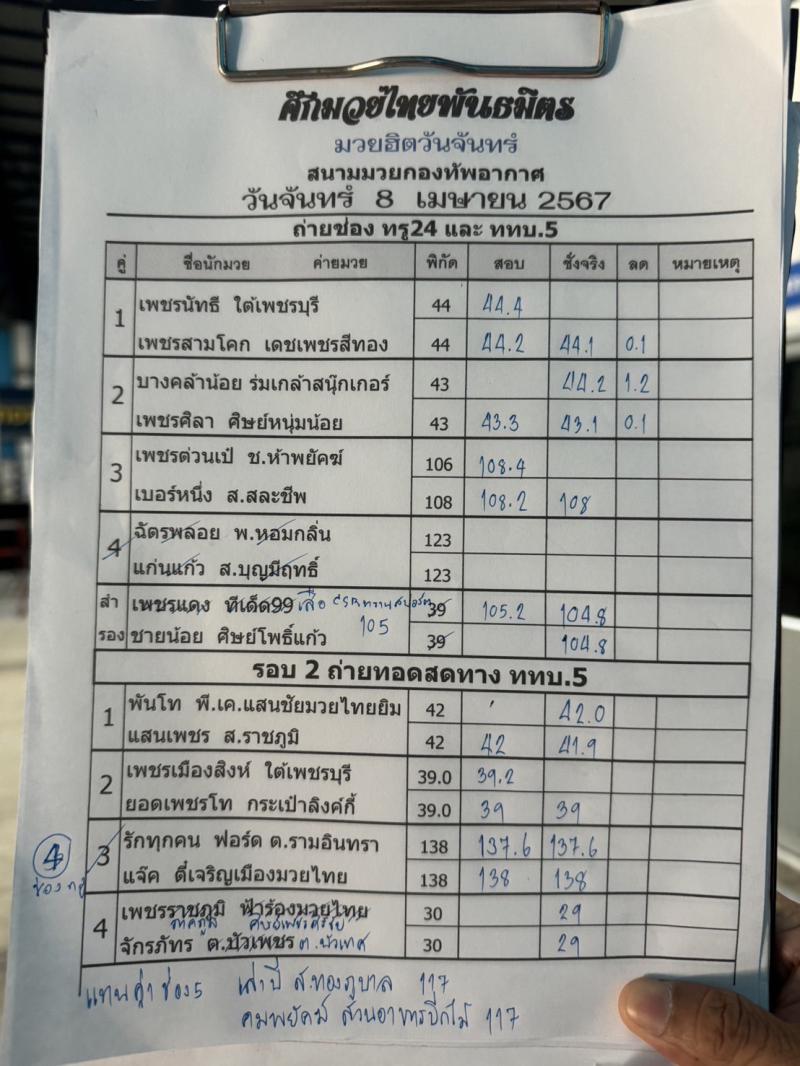 ศึกมวยไทยพันธมิตร
มวยฮิตวันจันทร์
สนามมวยกองทัพอากาศ
วันจันทร์ 8 เมษายน 2567
ถ่ายช่อง ทรู24 และ ททบ.5
คู่ ชื่อนักมวย ค่ายมวย พิกัด สอบ ชั่งจริง ลด หมายเหตุ
1 เพชรนัทธี ใต้เพชรบุรี 44 44.4
เพชรสามโคก เดชเพชรสีทอง 44 44.2 44.1 0.1
2 บางคล้าน้อย ร่มเกล้าสนุ๊กเกอร์ 43 44.2 1.2
เพชรศิลา ศิษย์หนุ่มน้อย 43 43.3 43.1 0.1
3 เพชรด่วนเป้ ช.ห้าพยัคฆ์ 106 108.4
เบอร์หนึ่ง ส.สละชีพ 108 108.2 108
4 ฉัตรพลอย พ.หอมกลิ่น 123
แก่นแก้ว ส.บุญมีฤทธิ์ 123
สำรอง เพชรแดง ทีเด็ด99 เสือ 39 105.2 104.8
ชายน้อย ศิษย์โพธิ์แก้ว 105 39 104.8
รอบ 2 ถ่ายทอดสดทาง ททบ.5
1 พันโท พี.เค.แสนชัยมวยไทยยิม 42 42.0
แสนเพชร ส.ราชภูมิ 42 42 41.9
2 เพชรเมืองสิงห์ ใต้เพชรบุรี 39.0 39.2
ยอดเพชรโท กระเป๋าลิงค์กี้ 39.0 39 39
3 รักทุกคน ฟอร์ด ต.รามอินทรา 138 137.6 137.6
4
แจ๊ค ตี่เจริญเมืองมวยไทย 138 138 138
4 เพชรราชภูมิ ฟ้าร้องมวยไทย 30 29
จักรภัทร ต.บัวเพชร ต.บัวเทศ 30 29
แทนคู่ 1 ช่อง 5 เล่าปี่ ส.ทองภูบาล 117
คมพยัคฆ์ สวนอาหารปีกไม้ 117